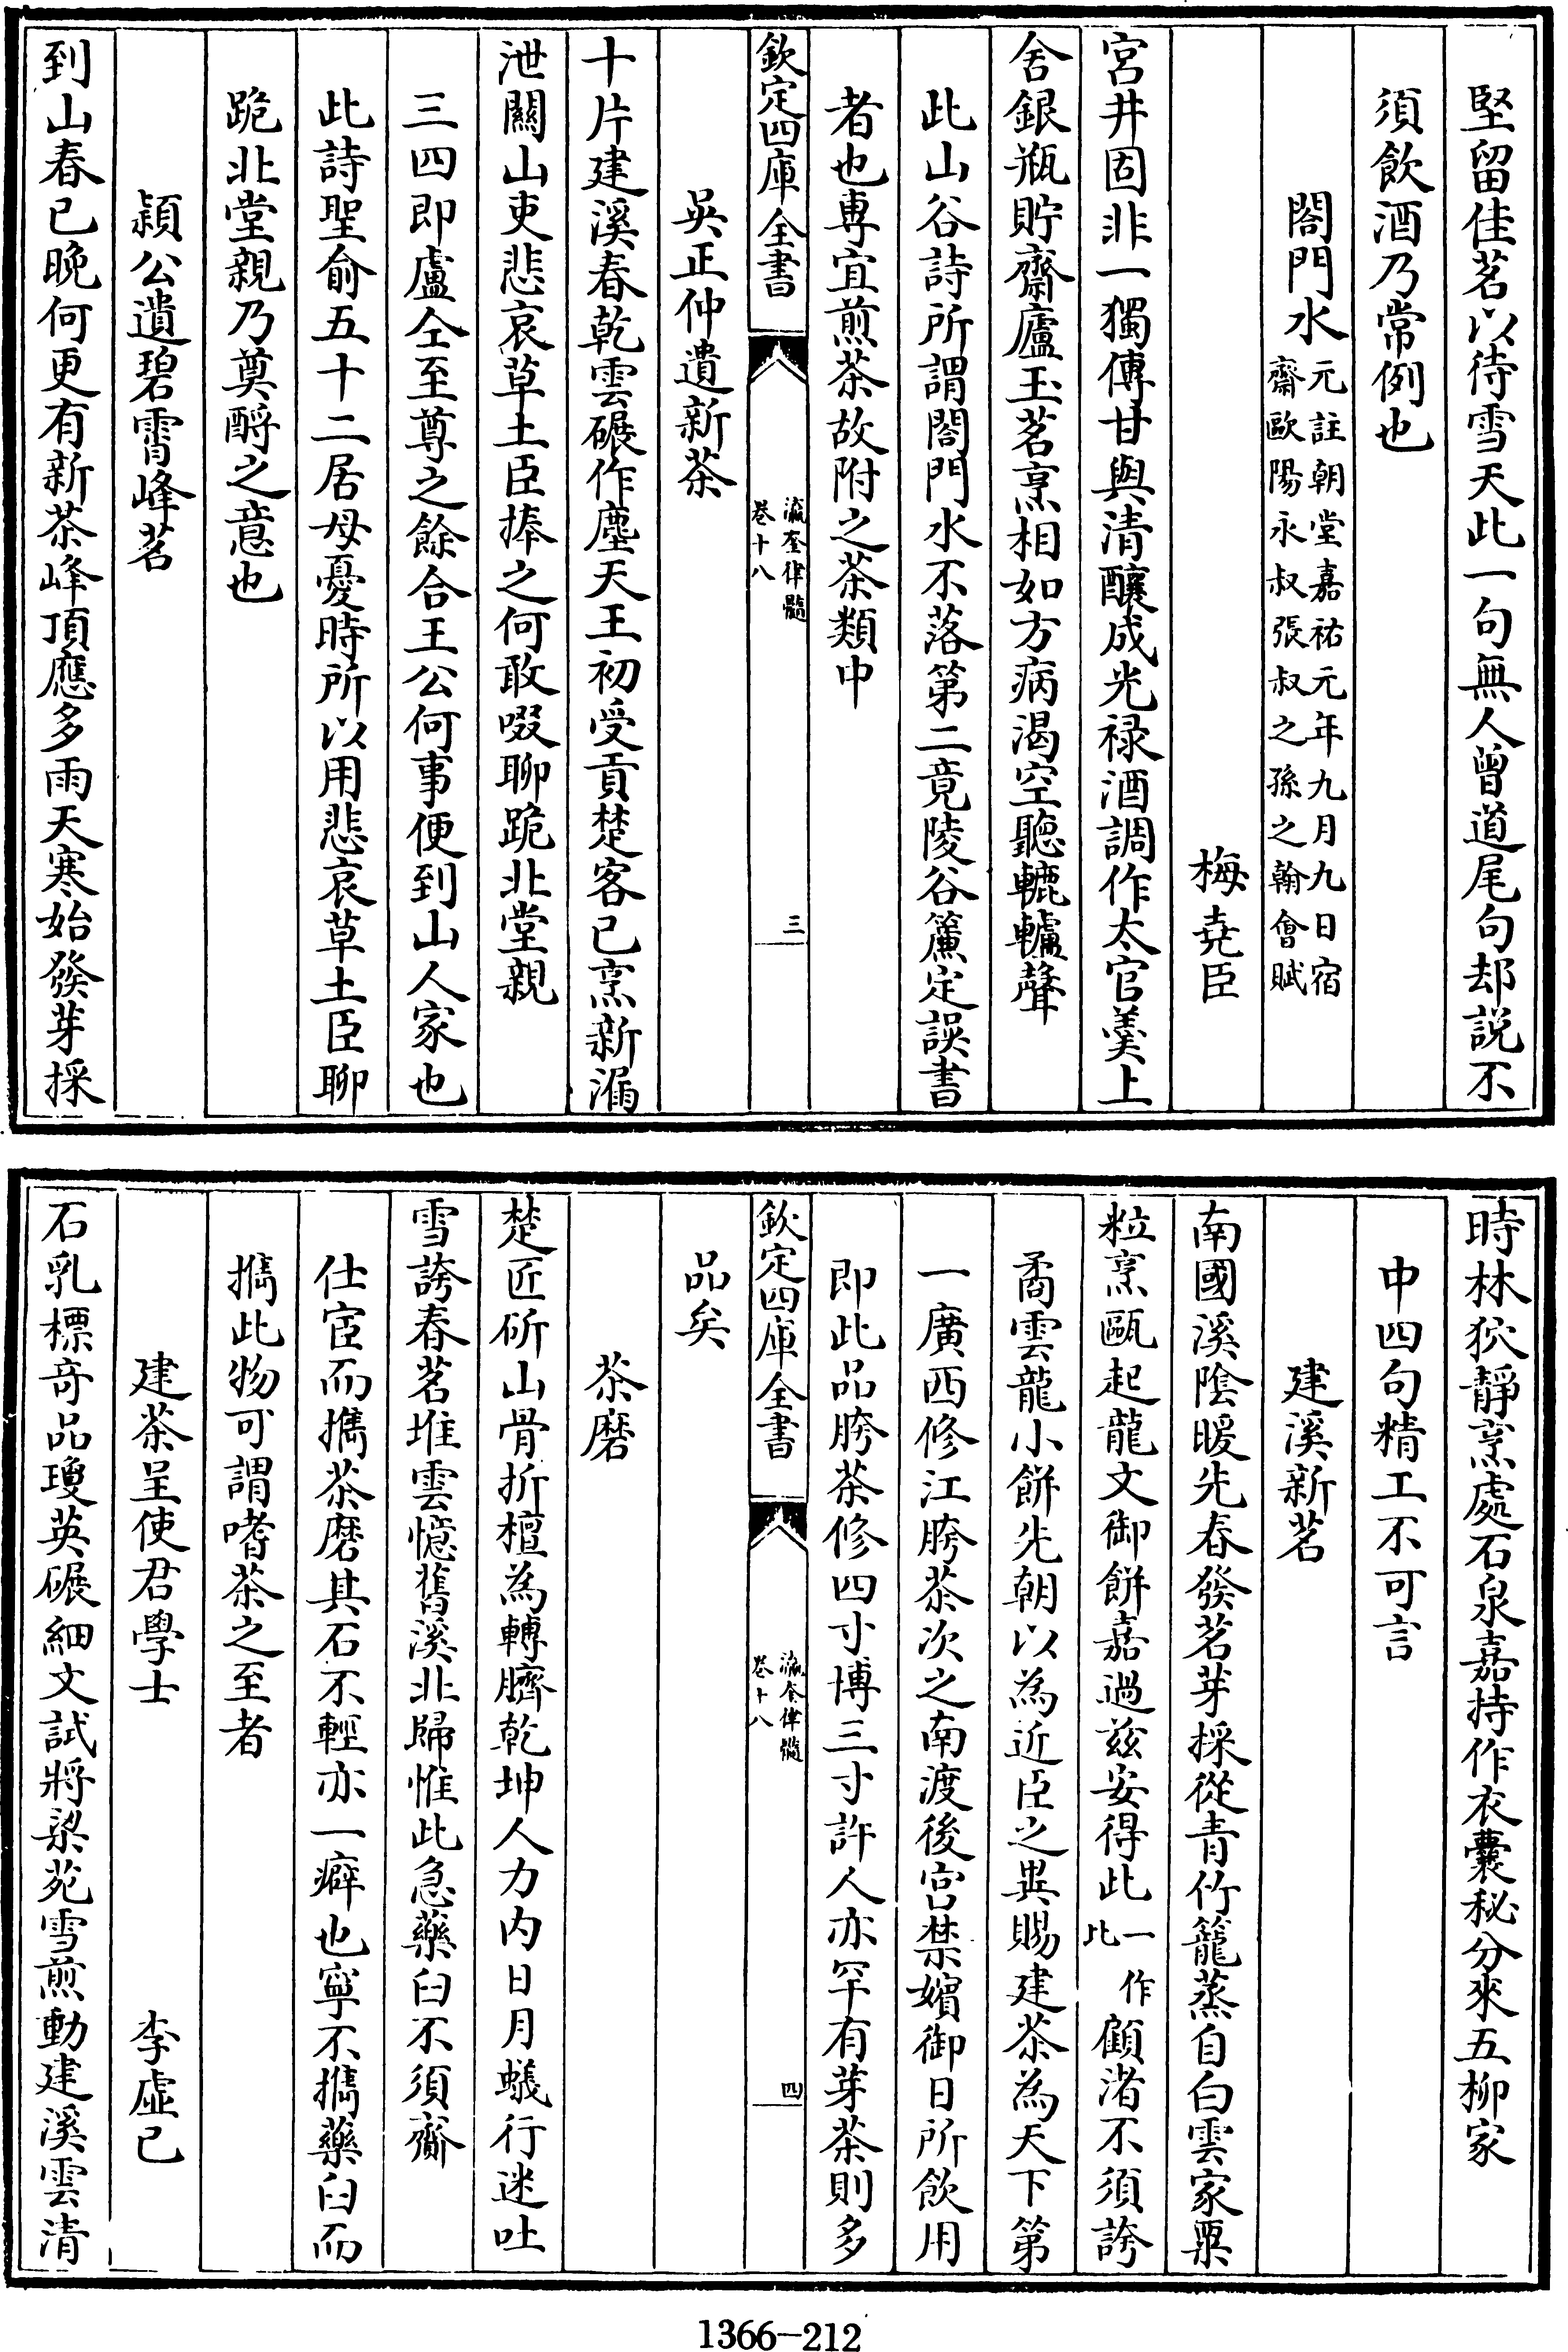 堅留佳茗以待雪天此一句無人曾道尾句却説不
須飲酒乃常例也
閤門水元註朝堂嘉祐元年九月九日宿
齋歐陽永叔張叔之孫之翰會賦
梅堯臣
宮井固非一獨傳甘與清釀成光禄酒調作太官羮上
舍銀瓶貯齋廬玉茗烹相如方病渴空聽轆轤聲
此山谷詩所謂閤門水不落第二竟陵谷簾定誤書
者也専宜煎茶故附之茶類中
欽定四庫全書
瀛奎律髓
卷十八
三
吳正仲遺新茶
十片建溪春乾雲碾作塵天王初受貢楚客已烹新漏
泄關山吏悲哀草土臣捧之何敢啜聊跪北堂親
三四即盧仝至尊之餘合王公何事便到山人家也
此詩聖俞五十二居母憂時所以用悲哀草土臣聊
跪北堂親乃奠酹之意也
潁公遺碧霄峰茗
到山春已晚何更有新茶峰頂應多雨天寒始發芽採
時林狖靜烹處石泉嘉持作衣囊秘分來五柳家
中四句精工不可言
建溪新茗
南國溪隂暖先春發茗芽採從青竹籠蒸自白雲家粟
粒烹甌起龍文御餅嘉過兹安得此一作
比顧渚不須誇
矞雲龍小餅先朝以為近臣之異賜建茶為天下第
一廣西修江胯茶次之南渡後宮禁嬪御日所飲用
即此品胯茶修四寸博三寸許人亦罕有芽茶則多
欽定四庫全書
瀛奎律髓
卷十八
四
品矣
茶磨
楚匠斫山骨折檀為轉臍乾坤人力内日月蟻行迷吐
雪誇春茗堆雲憶舊溪北歸惟此急藥臼不須齎
仕宦而擕茶磨其石不輕亦一癖也寧不擕藥臼而
擕此物可謂嗜茶之至者
建茶呈使君學士
李虛己
石乳標奇品瓊英碾細文試將梁苑雪煎動建溪雲清
1366—212